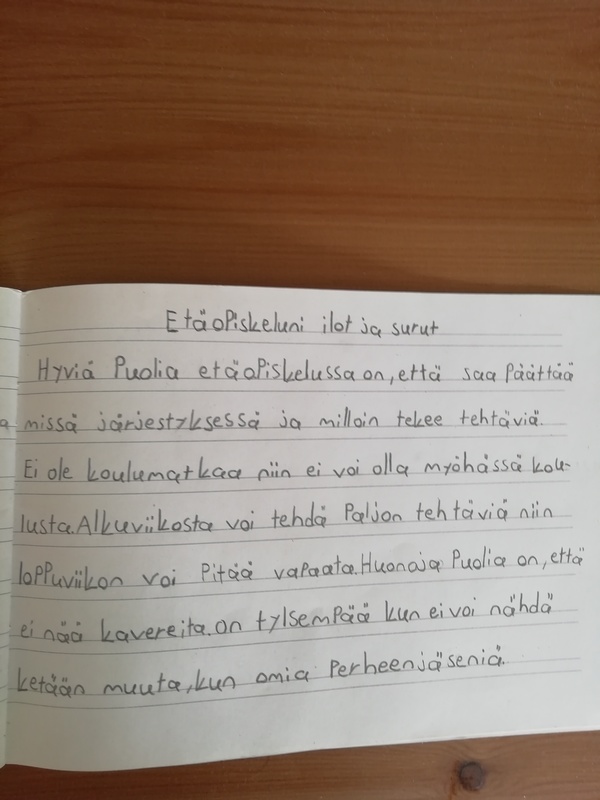 EtäoPiskeluni ilot ja surut
Hyviä Puolia etäoPiskelussa on, että saa Päättää
missä järjestyksessä ja milloin tekee tehtäviä.
Ei ole koulumatkaa niin ei voi olla myöhässä kou-
lusta. Alkuviikosta voi tehdä Paljon tehtäviä niin
loppuviikon voi Pitää vapaata. Huonoja Puolia on, että
ei nää kavereita. on tylsempää kun ei voi nähdä
ketään muuta, kun omia Perheenjäseniä.